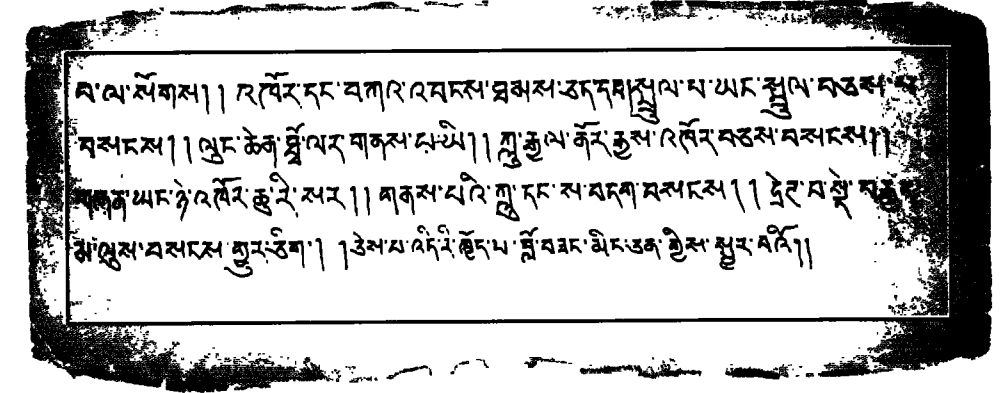 བ་ལ་སོགས། ། འཁོར་དང་བཀའ་འབངས་ཐམས་ཅད་དང། སྤྲུལ་པ་ཡང་སྤྲུལ་བཅས་པ་
བསངས། ། ལུང་ཆེན་ཀློ་ལར་གནས་པ་ཡི། ། ཀླུ་རྒྱལ་ནོར་རྒྱས་འཁོར་བཅས་བསངས། །
གཉན་ཡང་ཉེ་འཁོར་ཆུ་རི་སར། ། གནས་པའི་ཀླུ་དང་ས་བདག་བསངས། ། དྲེཊ་པ་སྡེ་བརྒྱད་
མ་ལུས་བསངས་གྱུར་ཅིག ། ཅེས་པ་འདི་རི་ཁྲོད་པ་བློ་བཟང་མིང་ཅན་གྱིས་སྦྱར་བའོ། །